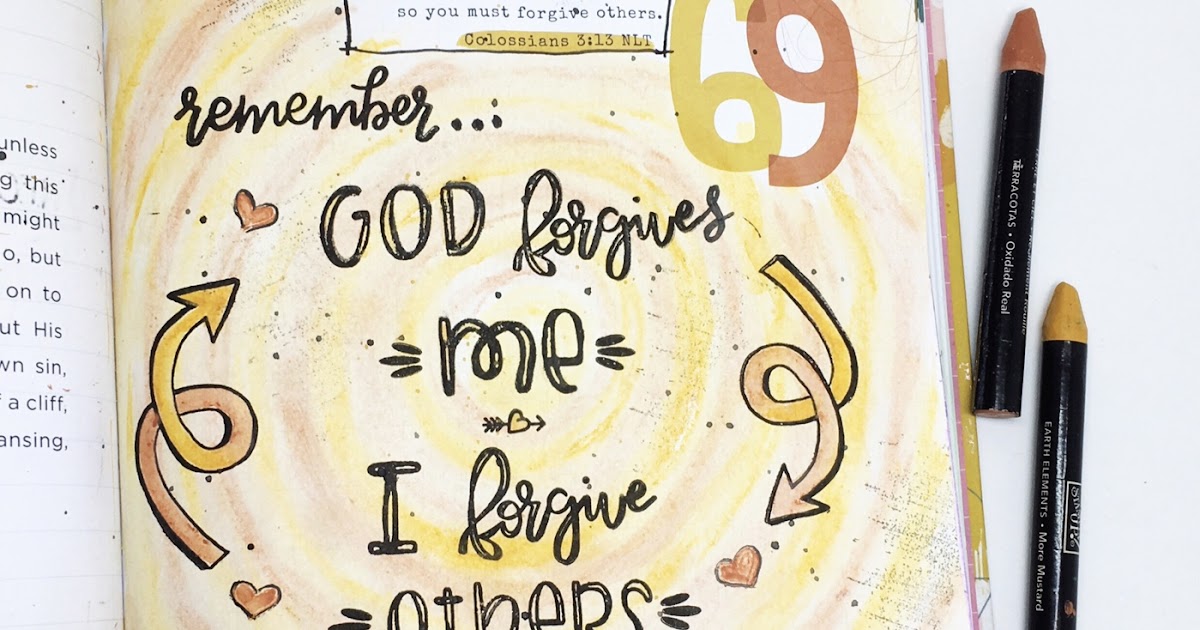 so you must forgive others.
Colossians 3:13 NLT
69
remember...
GOD forgives
me
I forgive
others
unless
g this
might
o, but
on to
ut His
wn sin,
f a cliff,
ansing,
TERRACOTAS • Oxidado Real
EARTH ELEMENTS • More Mustard